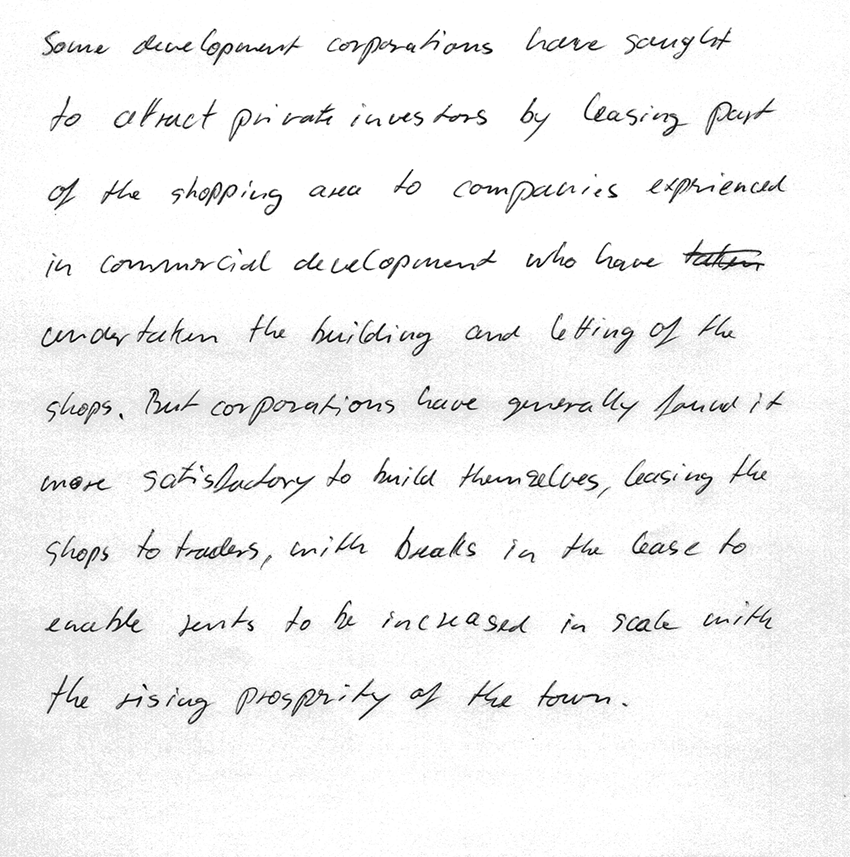 Some development corporations have sought
to attract private investors by leasing part
of the shopping area to companies experienced
in commercial development who have taken
undertaken the building and letting of the
shops. But corporations have generally found it
more satisfactory to build themselves, leasing the
shops to traders, with breaks in the lease to
enable rents to be increased in scale with
the rising prosperity of the town.